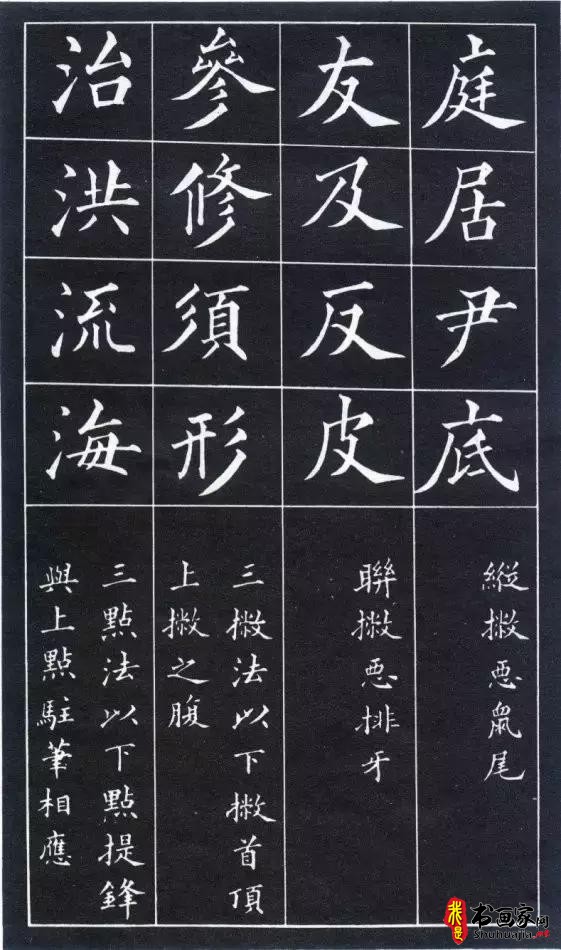 庭居尹底
縱撇惡鼠尾
友及反皮
聯撇惡排牙
參修須形
三撇法以下撇首頂
上撇之腹
治洪流海
三點法以下點提鋒
與上點駐筆相應
我是
书画家网
Shuhuajia.net